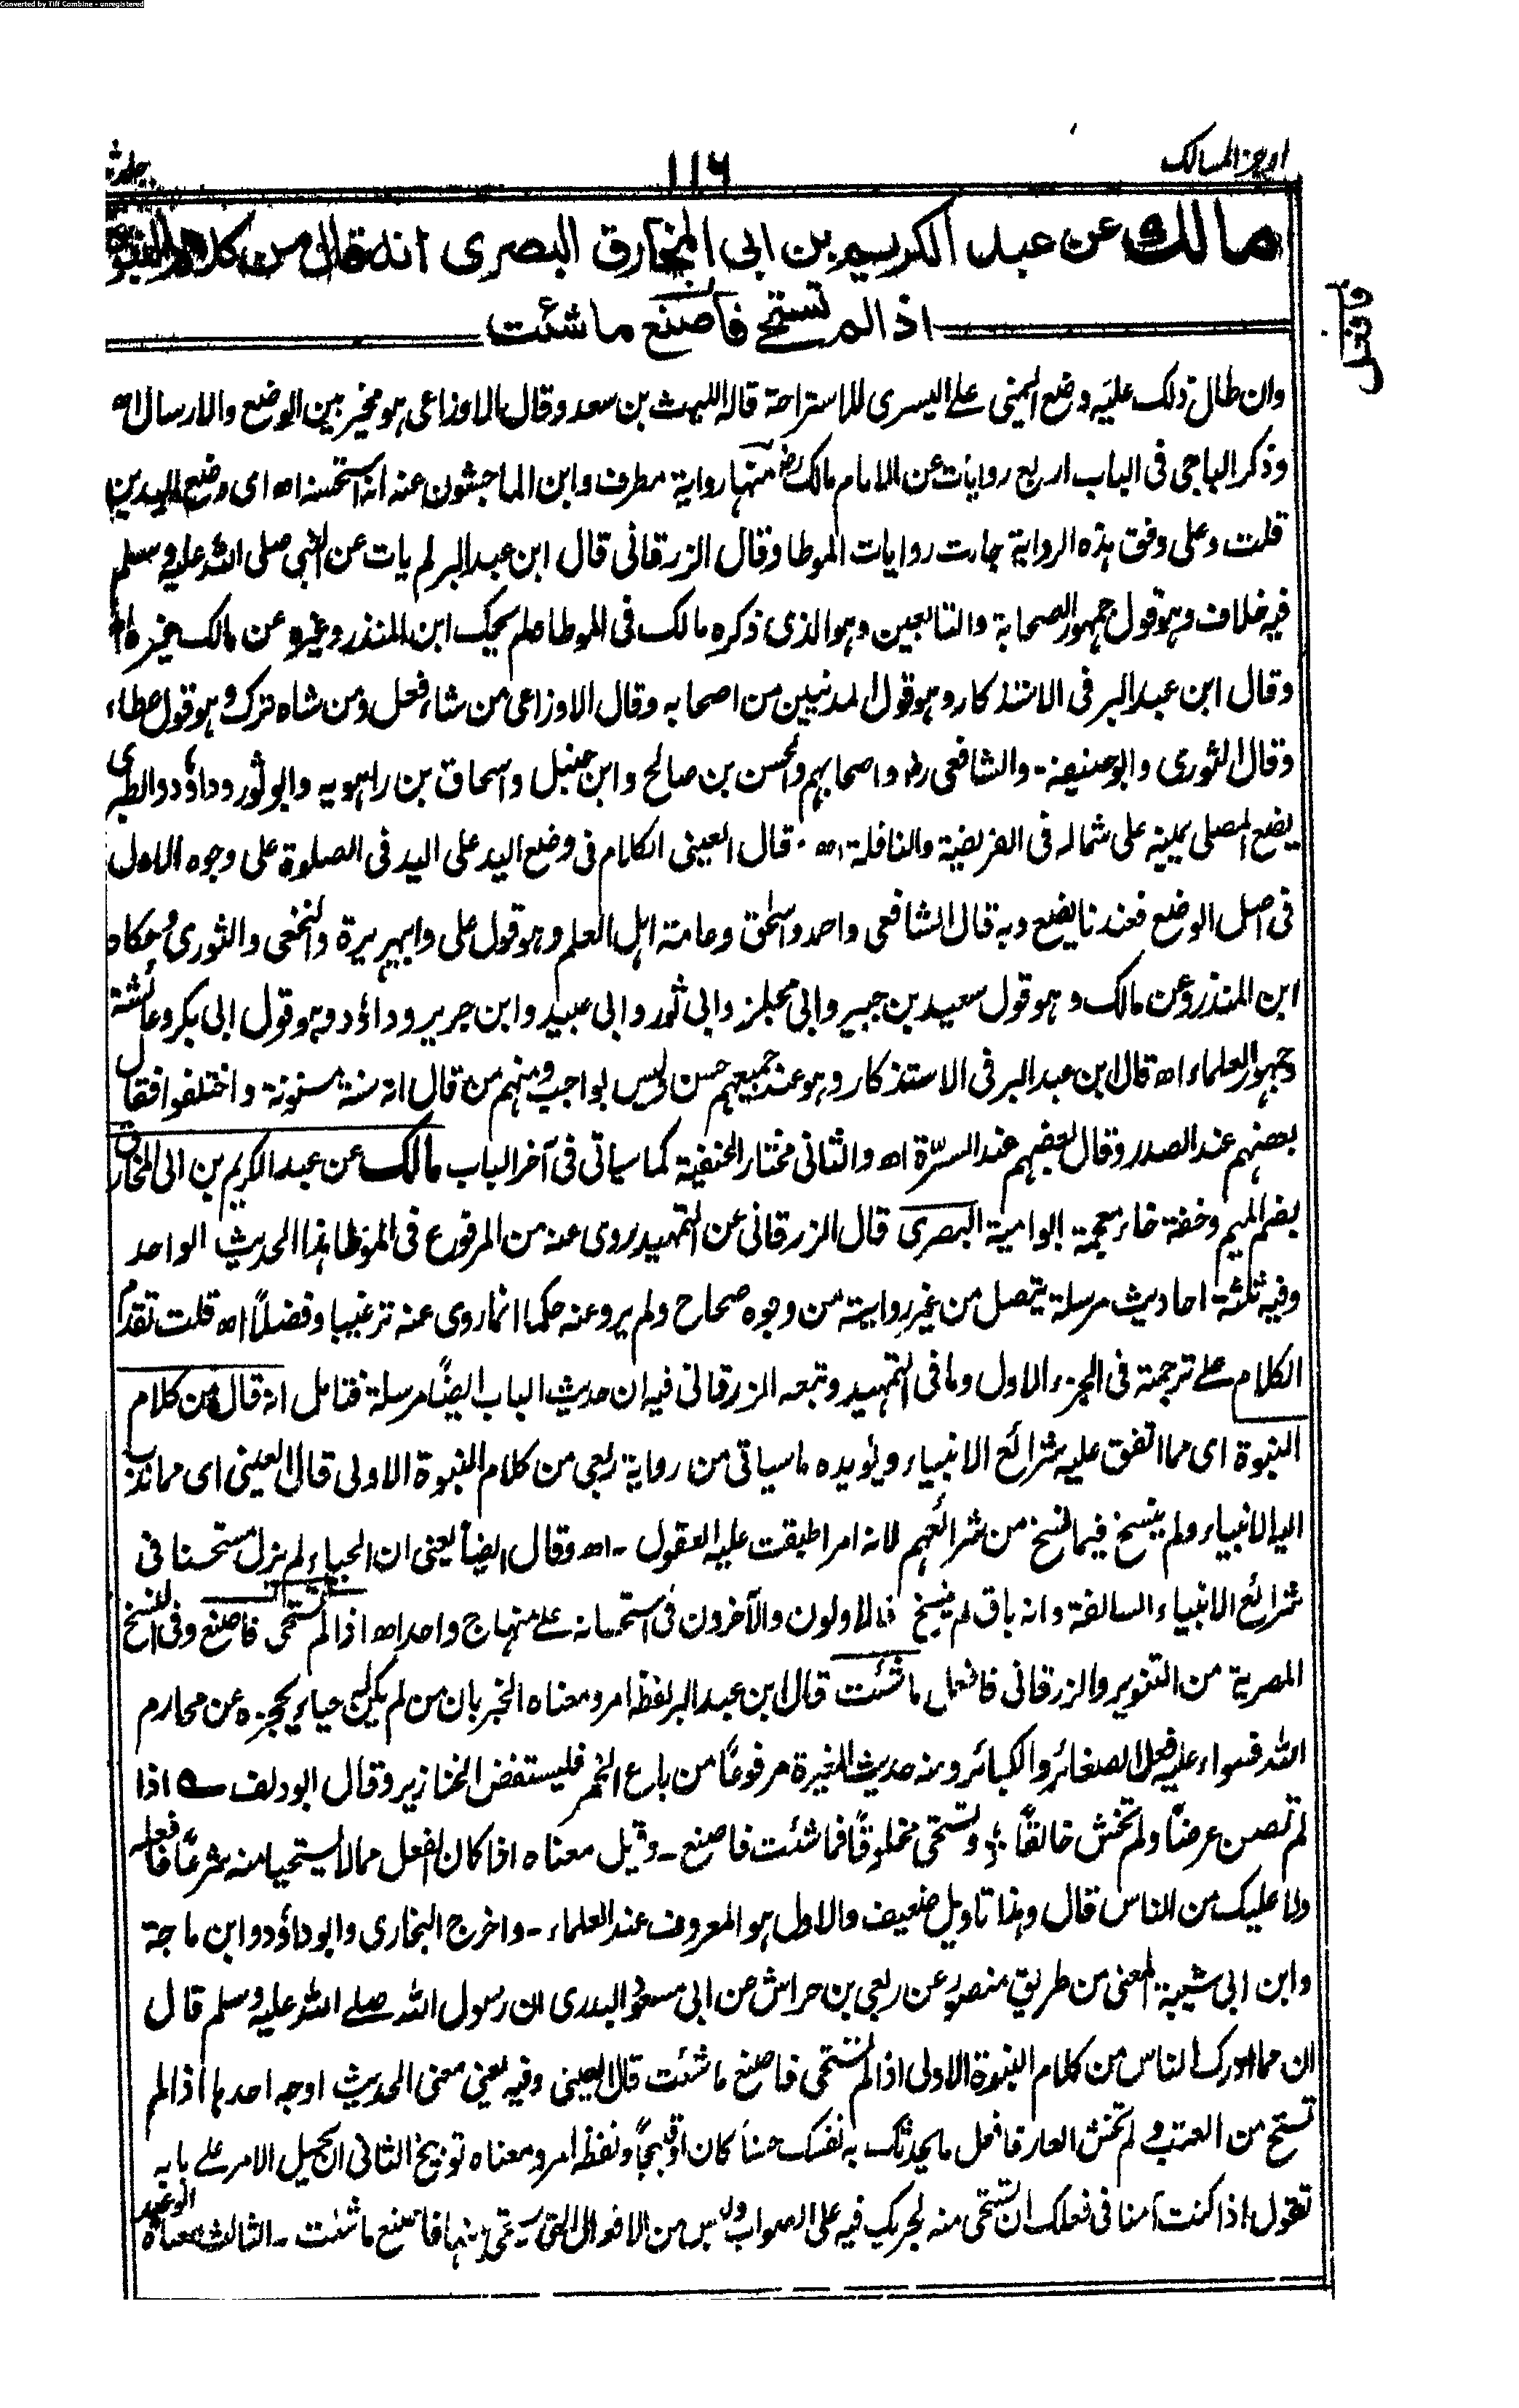 Converted by Tiff Combine - unregistered
اوجز المسالك
١١٦
جلد
مالك عن عبد الكريم بن ابى المخارق البصرى انه قال من كلام النبوة
اذا لم تستحى فاصنع ما شئت
فافعل
وان طال ذلك عليه وضع اليمنى على اليسرى للاستراحة قاله الليث بن سعد وقال الاوزاعى هو مخير بين الوضع والارسال اه
وذكر الباجى فى الباب اربع روايات عن الامام مالك رض منها رواية مطرف وابن الماجشون عنه انه استحسنه اه اى وضع اليدين
قلت وعلى وفق هذه الرواية جاءت روايات الموطا وقال الزرقانى قال ابن عبد البر لم يات عن النبى صلى الله عليه وسلم
فيه خلاف وهو قول جمهور الصحابة والتابعين وهو الذى ذكره مالك فى الموطا ولم يحك ابن المنذر وغيره عن مالك غيره اه
وقال ابن عبد البر فى الاستذكار وهو قول المدنيين من اصحابه وقال الاوزاعى من شاء فعل ومن شاء ترك وهو قول عطاء
وقال الثورى وابو حنيفة والشافعى رح واصحابهم والحسن بن صالح وابن حنبل واسحاق بن راهويه وابو ثور وداؤد والطبرى
يضع المصلى يمينه على شماله فى الفريضة والنافلة اه قال العينى الكلام فى وضع اليد على اليد فى الصلوة على وجوه الاول
فى اصل الوضع فعندنا يضع وبه قال الشافعى واحمد واسحق وعامة اهل العلم وهو قول على وابى هريرة والنخعى والثورى وحكاه
ابن المنذر عن مالك وهو قول سعيد بن جبير وابى مجلز وابى ثور وابى عبيد وابن جرير وداؤد وهو قول ابى بكر وعائشة
وجمهور العلماء اه قال ابن عبد البر فى الاستذكار وهو عند جميعهم حسن وليس بواجب ومنهم من قال انه سنة مسنونة واختلفوا فقال
بعضهم عند الصدر وقال بعضهم عند السرّة اه والثانى مختار الحنفية كما سياتى فى آخر الباب مالك عن عبد الكريم بن ابى المخارق
بضم الميم وخفة خاء معجمة ابو امية البصرى قال الزرقانى عن التمهيد يروى عنه من المرفوع فى الموطا هذا الحديث الواحد
وفيه ثلثة احاديث مرسلة يتصل من غير روايته من وجوه صحاح ولم يرو عنه حكما انما روى عنه ترغيبا وفضلاً اه قلت تقدم
الكلام على ترجمته فى الجزء الاول وما فى التمهيد وتبعه الزرقانى فيه ان حديث الباب ايضاً مرسلة فتامل انه قال من كلام
النبوة اى مما اتفق عليه شرائع الانبياء ويؤيده ما سياتى من رواية ربعى من كلام النبوة الاولى قال العينى اى مما ندب
اليه الانبياء ولم ينسخ فيما نسخ من شرائعهم لانه امر اطبقت عليه العقول - اه وقال ايضاً يعنى ان الحياء لم يزل مستحسنا فى
شرائع الانبياء السالفة وانه باق لم ينسخ فالاولون والآخرون فى استحسانه على منهاج واحد اه اذا لم تستحى فاصنع وفى النسخ
المصرية من التنوير والزرقانى فافعل ما شئت قال ابن عبد البر لفظه امر ومعناه الخبر بان من لم يكن له حياء يحجزه عن محارم
الله فسواء عليه فعل الصغائر والكبائر ومنه حديث المغيرة مرفوعاً من باع الخمر فليستفض الخنازير وقال ابو دلف ؎ اذا
لم تصن عرضاً ولم تخش خالقاً ؛ وتستحى مخلوقاً فما شئت فاصنع - وقيل معناه اذا كان الفعل مما لا يستحيا منه شرعاً فافعله
ولا عليك من الناس قال وهذا تاويل ضعيف والاول هو المعروف عند العلماء - واخرج البخارى وابو داؤد وابن ماجة
وابن ابى شيبة المعنى من طريق منصور عن ربعى بن حراش عن ابى مسعود البدرى ان رسول الله صلى الله عليه وسلم قال
ان مما ادرك الناس من كلام النبوة الاولى اذا لم تستحى فاصنع ما شئت قال العينى وفيه يعنى معنى الحديث اوجه احدها اذا لم
تستح من العتب ولم تخش العار فافعل ما يحدثك به نفسك حسناً كان او قبيحاً ولفظه امر ومعناه توبيخ الثانى ان يحمل الامر على بابه
تقول اذا كنت آمنا فى فعلك ان تستحى منه لجريك فيه على الصواب وليس من الافعال التى يستحى منها فاصنع ما شئت - الثالث معناه الوعيد